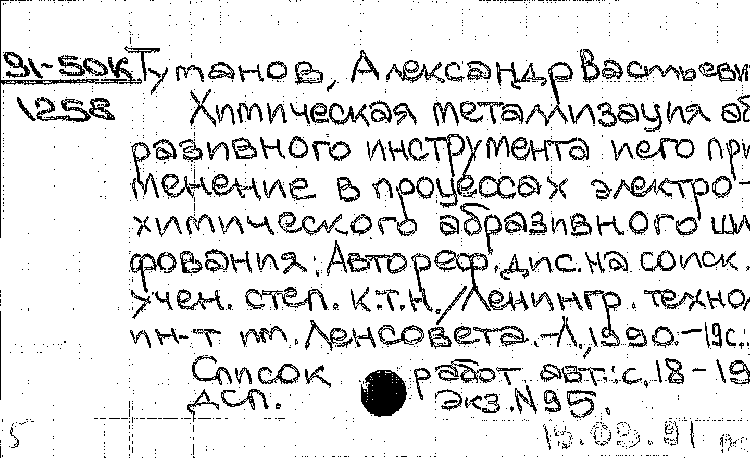 91-50К Туманов, Александр Васильеви
1258 Химическая металлизация аб
разивного инструмента и его при
менение в процессах электро-
химического абразивного шли
фования: Автореф. дис. на соиск.
учен. степ. к.т.н. / Ленингр. техно
ин-т им. Ленсовета. -Л, 1990. -19с.
Список работ авт.: с. 18-19
ДСП. Экз. N 95.
5 13.03.91